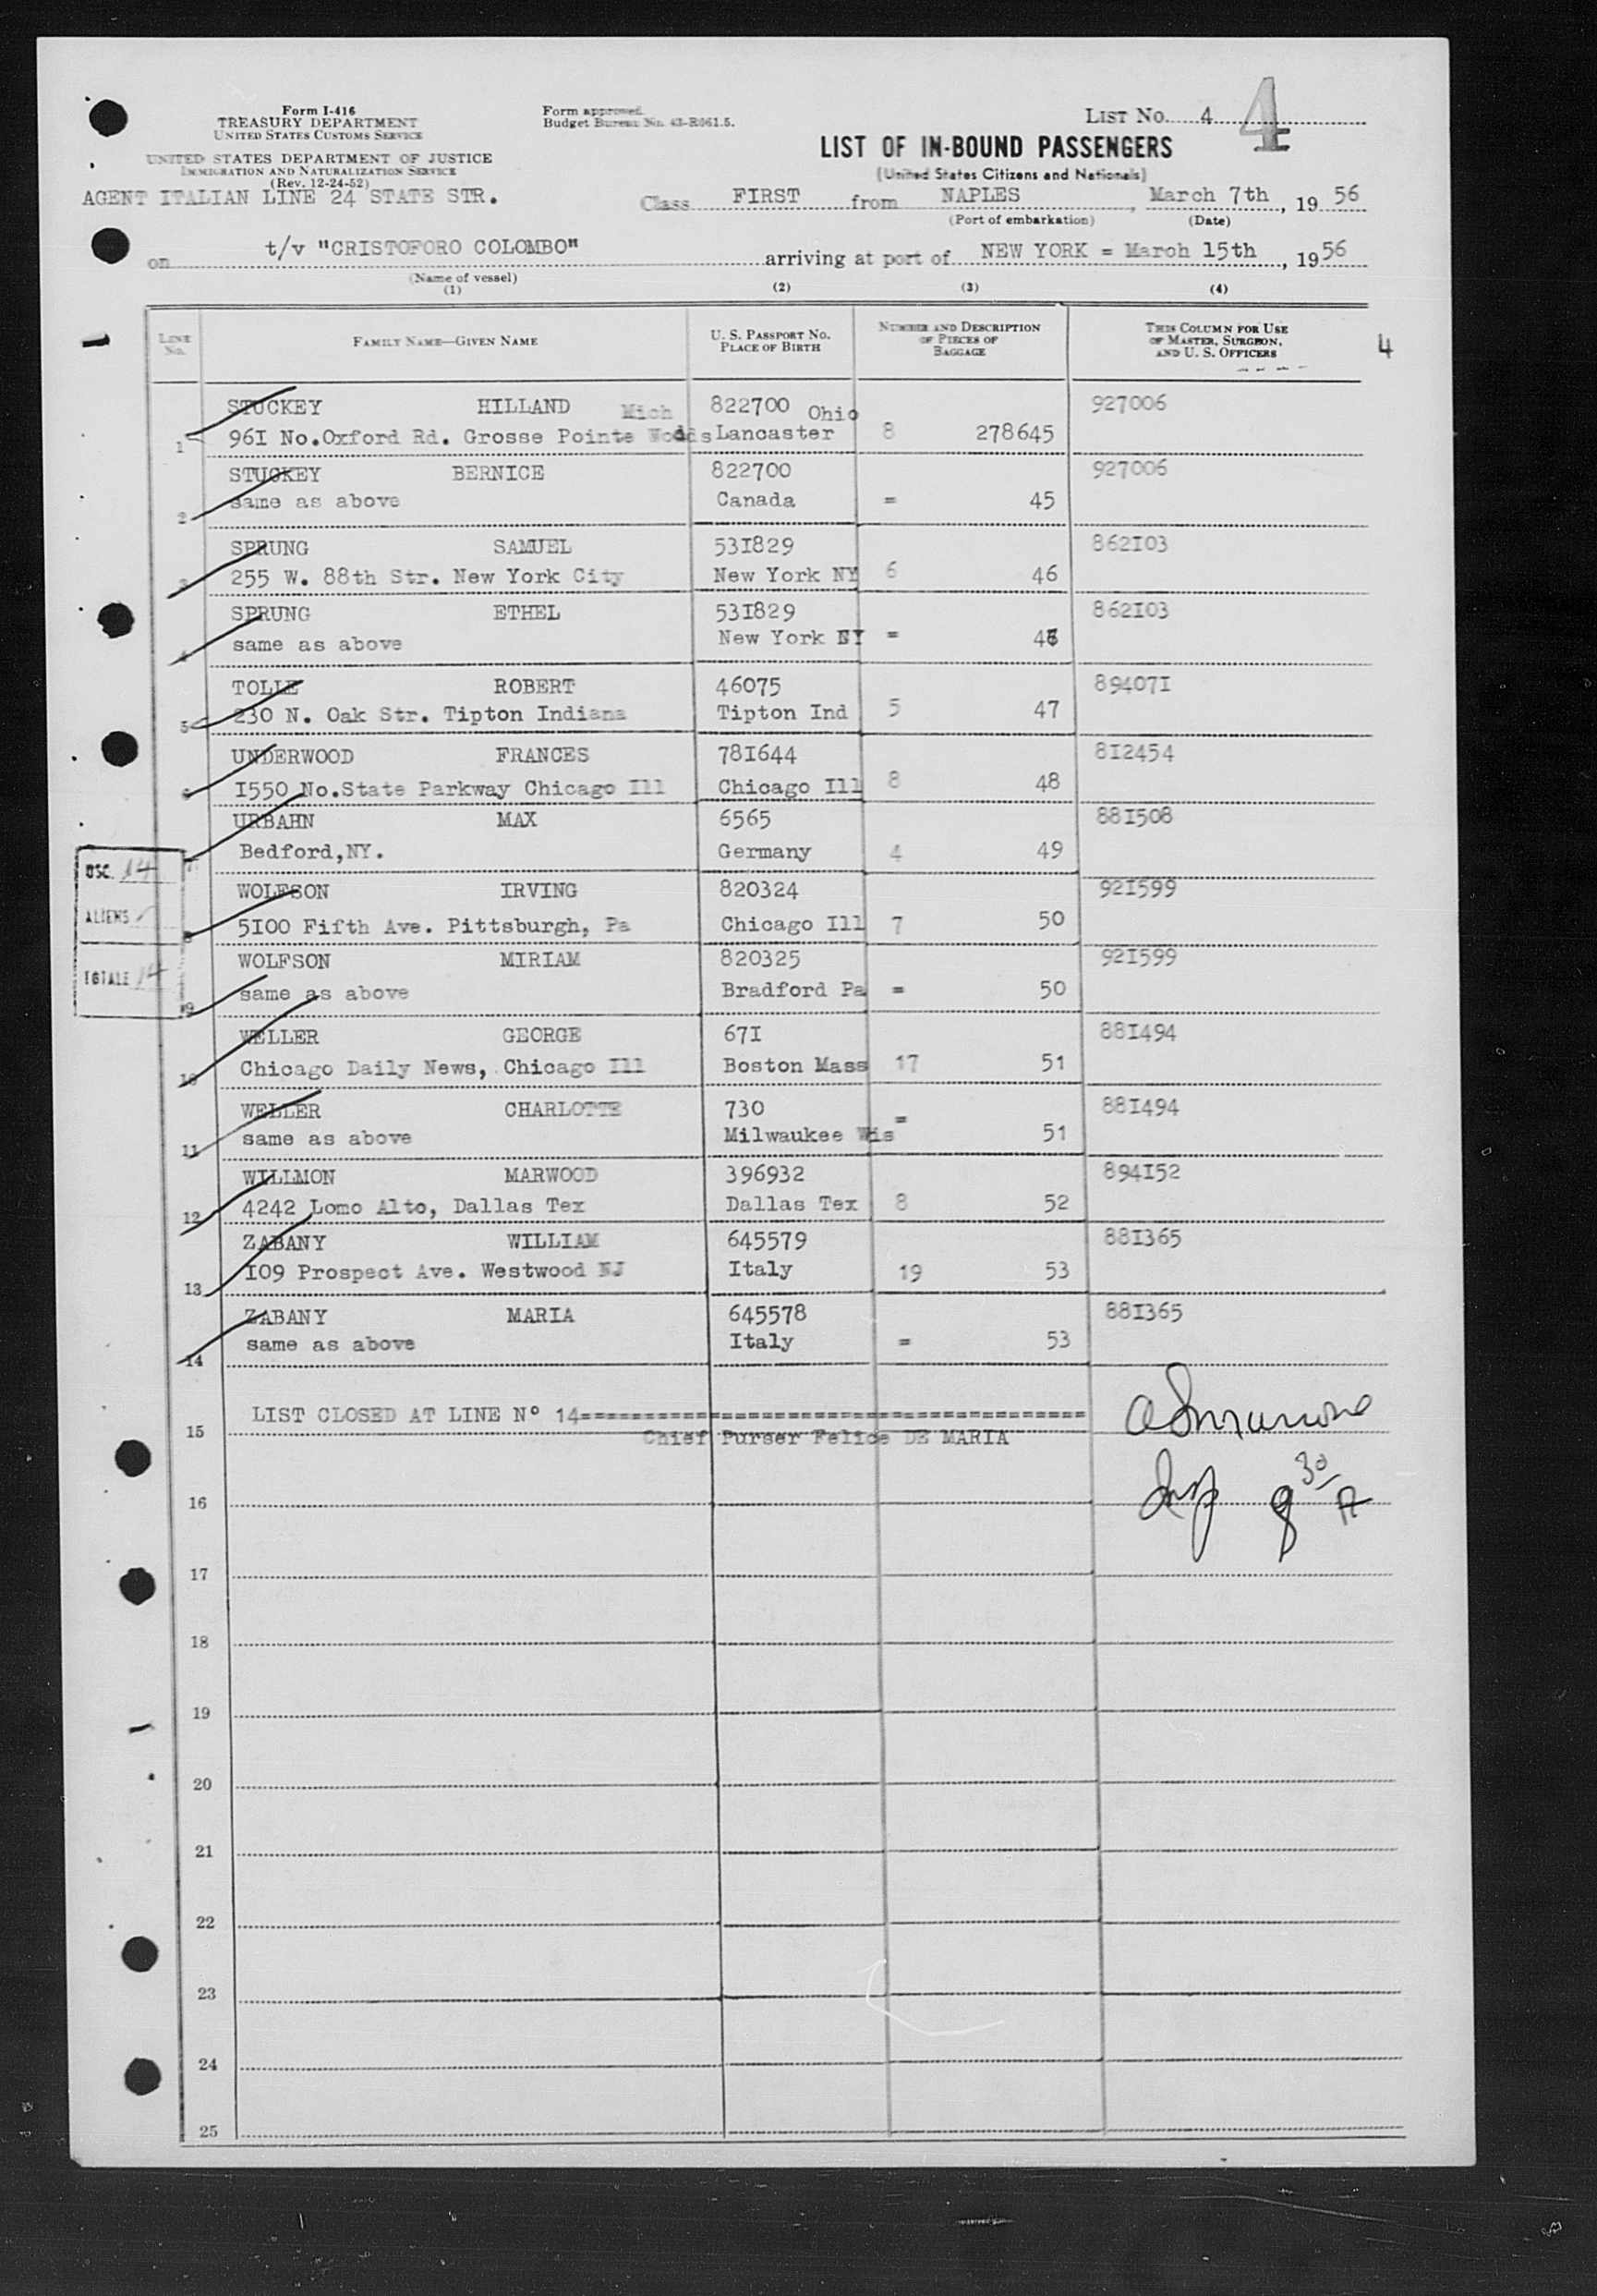 Form I-416
TREASURY DEPARTMENT
UNITED STATES CUSTOMS SERVICE
UNITED STATES DEPARTMENT OF JUSTICE
IMMIGRATION AND NATURALIZATION SERVICE
(Rev. 12-24-52)
AGENT ITALIAN LINE 24 STATE STR.
Form approved.
Budget Bureau No. 43-R061.5.
LIST No. 4 4
LIST OF IN-BOUND PASSENGERS
(United States Citizens and Nationals)
Class FIRST from NAPLES, March 7th, 1956
(Port of embarkation) (Date)
on t/v "CRISTOFORO COLOMBO" arriving at port of NEW YORK = March 15th, 1956
(Name of vessel)
(1) (2) (3) (4)
LINE No. FAMILY NAME—GIVEN NAME U. S. PASSPORT NO. PLACE OF BIRTH NUMBER AND DESCRIPTION OF PIECES OF BAGGAGE THIS COLUMN FOR USE OF MASTER, SURGEON, AND U. S. OFFICERS 4
STUCKEY HILLAND Mich 822700 Ohio 927006
1 96I No.Oxford Rd. Grosse Pointe Woods Lancaster 8 278645
STUCKEY BERNICE 822700 927006
2 same as above Canada = 45
SPRUNG SAMUEL 53I829 862I03
3 255 W. 88th Str. New York City New York NY 6 46
SPRUNG ETHEL 53I829 862I03
4 same as above New York NY = 46
TOLLE ROBERT 46075 89407I
5 230 N. Oak Str. Tipton Indiana Tipton Ind 5 47
UNDERWOOD FRANCES 78I644 8I2454
6 I550 No.State Parkway Chicago Ill Chicago Ill 8 48
URBAHN MAX 6565 88I508
7 Bedford,NY. Germany 4 49
WOLFSON IRVING 820324 92I599
8 5I00 Fifth Ave. Pittsburgh, Pa Chicago Ill 7 50
WOLFSON MIRIAM 820325 92I599
9 same as above Bradford Pa = 50
WELLER GEORGE 67I 88I494
10 Chicago Daily News, Chicago Ill Boston Mass 17 51
WELLER CHARLOTTE 730 88I494
11 same as above Milwaukee Wis = 51
WILLMON MARWOOD 396932 894I52
12 4242 Lomo Alto, Dallas Tex Dallas Tex 8 52
ZABANY WILLIAM 645579 88I365
13 I09 Prospect Ave. Westwood NJ Italy 19 53
ZABANY MARIA 645578 88I365
14 same as above Italy = 53
USC. 14
ALIENS
TOTALE 14
LIST CLOSED AT LINE Nº 14===============================================
15 Chief Purser Felice DE MARIA
Insp 8 30/A
16
17
18
19
20
21
22
23
24
25